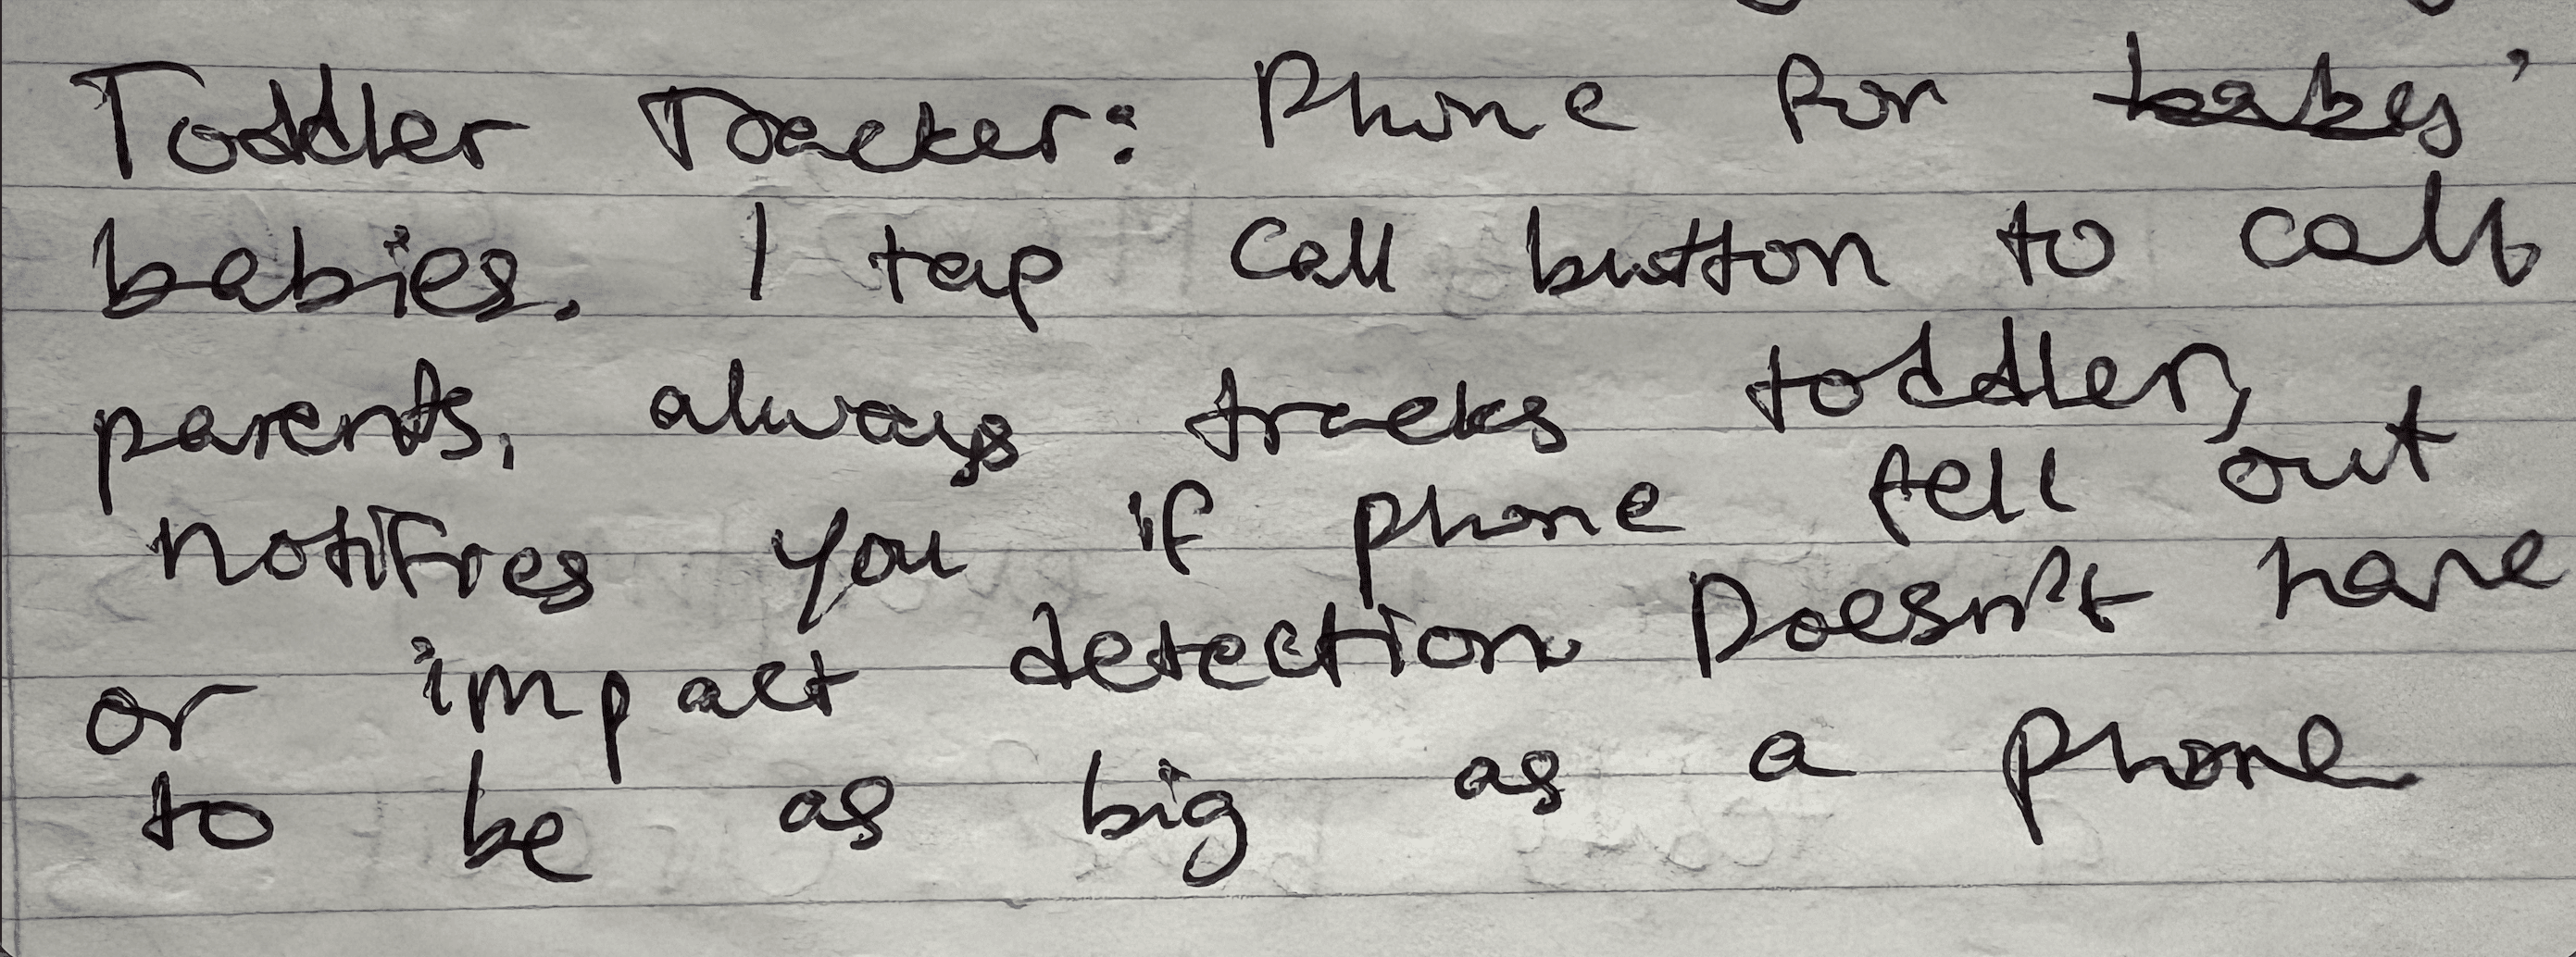 Toddler Tracker: Phone for
babies. 1 tap call button to call
parents, always tracks toddler,
notifies you if phone fell out
or impact detection Doesn't have
to be as big as a phone